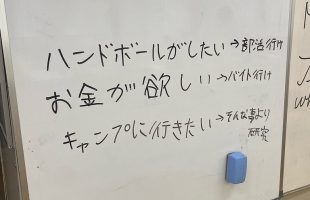 ハンドボールがしたい→部活行け
お金が欲しい→バイト行け
キャンプに行きたい→そんな事より
研究